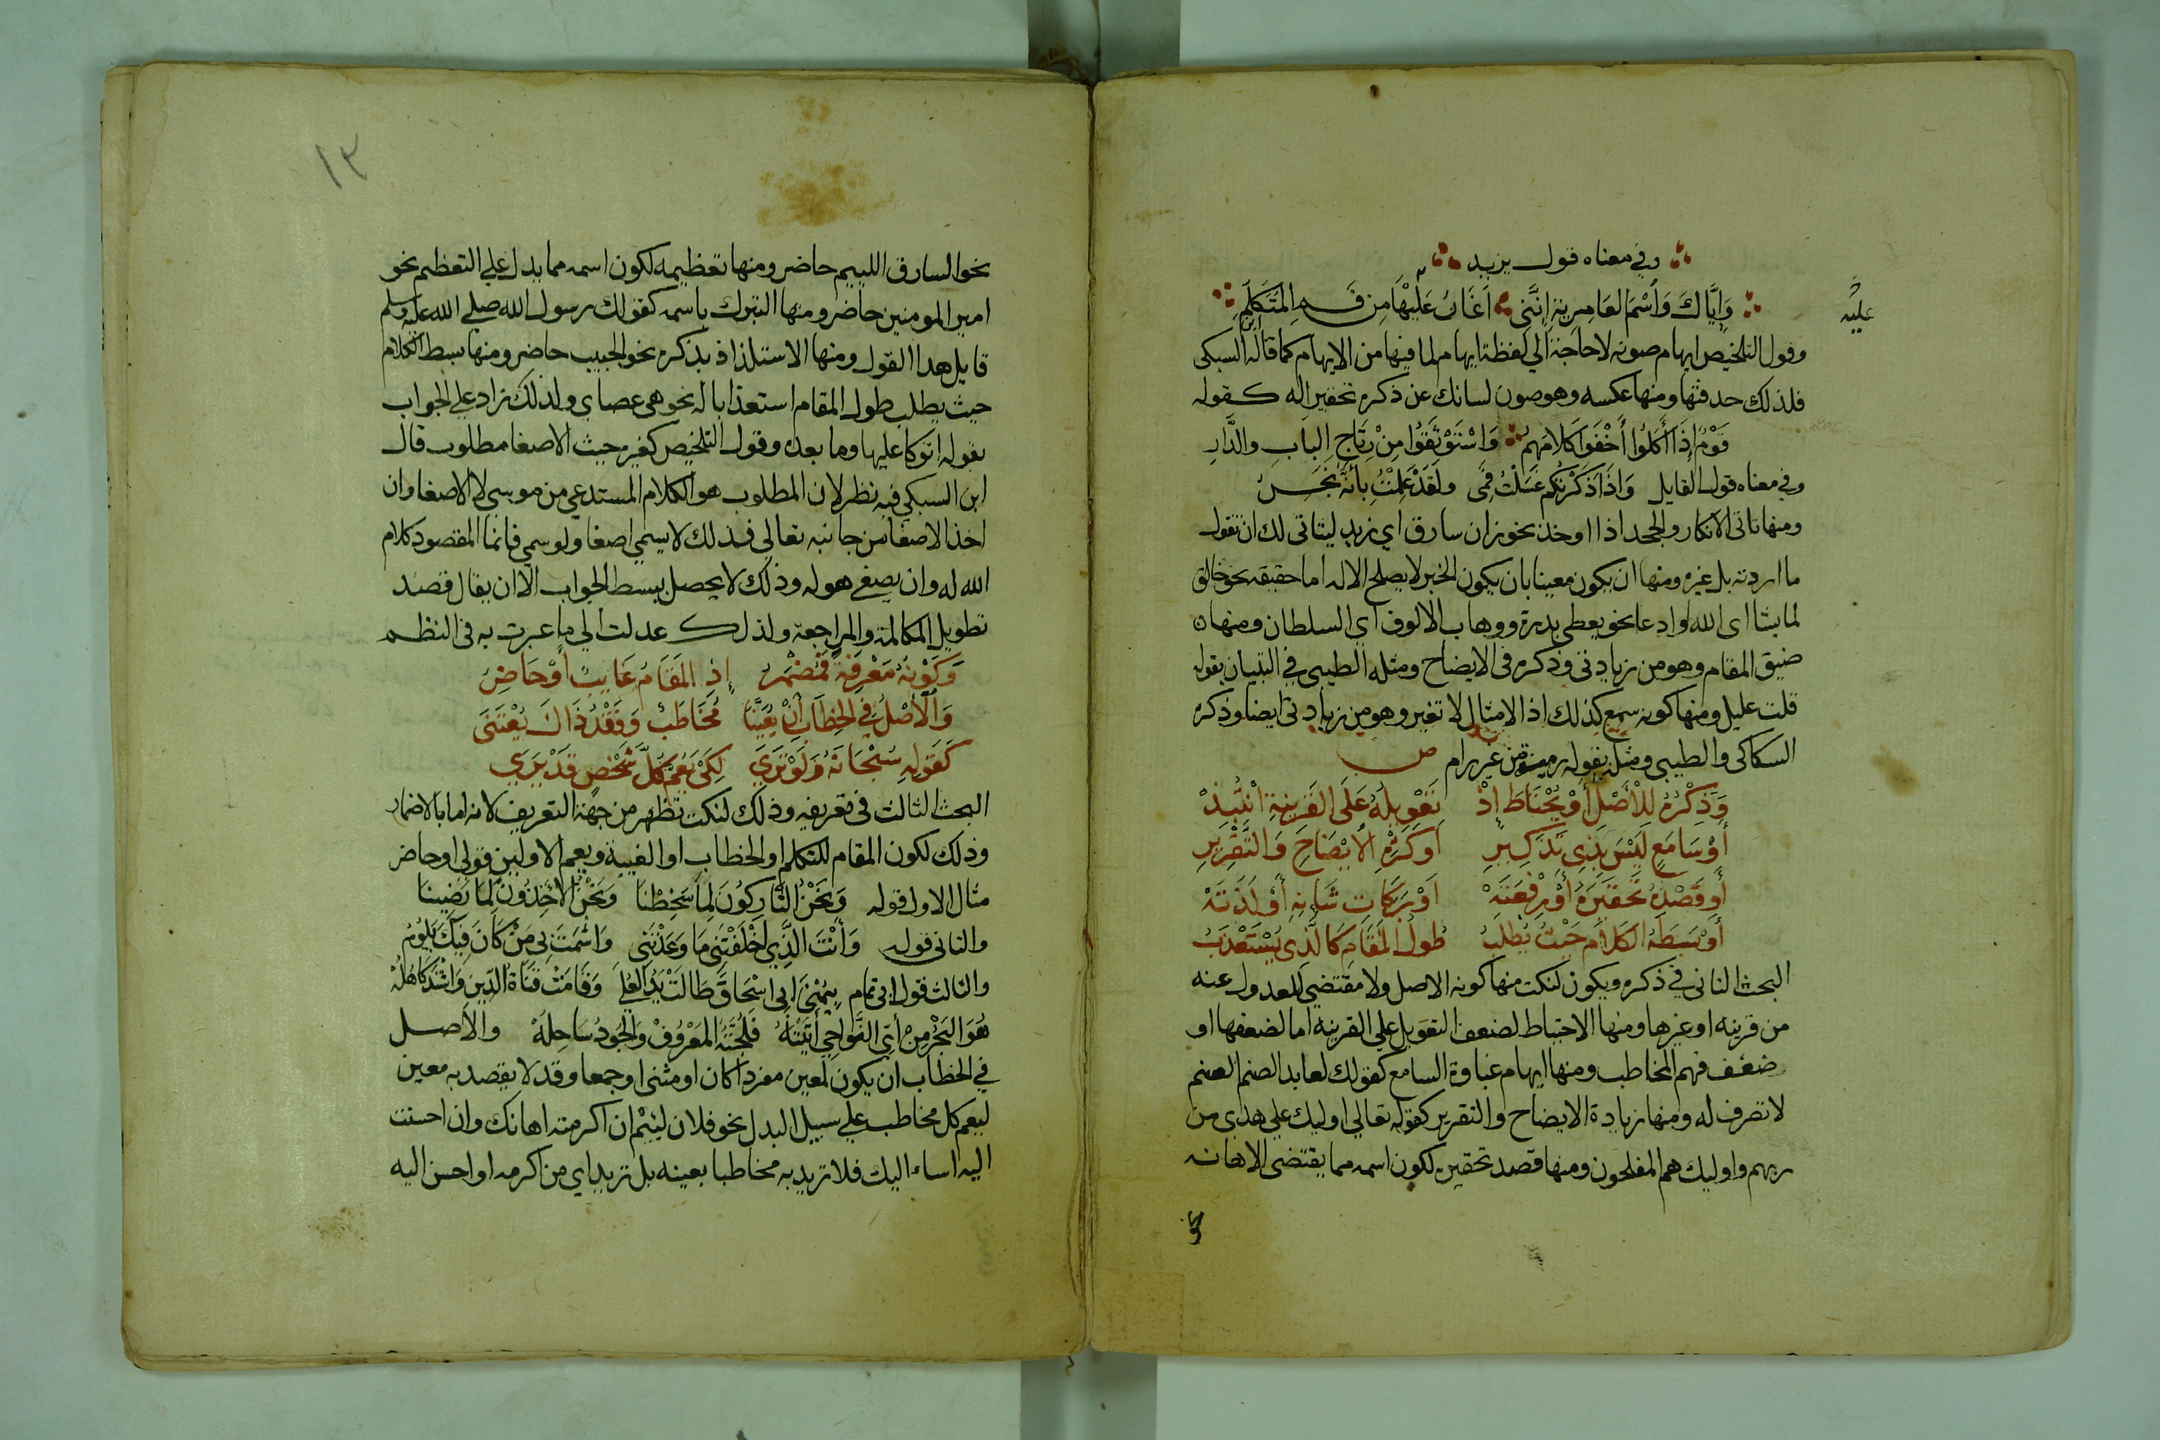 وفي معناه قول يزيد
وَإيَّاكَ وَاسْمَ العَامِرِيةِ إنَّنِي أَغَارُ عَلَيْهَا مِن فَمِ المُتَكَلِّمِ
عليه
وقول التلخيص ايهام صونه لا حاجة الي لفظة ايهام لما فيها من الايهام كما قاله السبكي
فلذلك حذفتها ومنها عكسه وهو صون لسانك عن ذكره تحقيرا له كقوله
قَوْمٌ إِذَا أَكَلُوا أَخْفَوا كَلَامَهُمُ وَاسْتَوْثَقُوا مِنْ رِتَاجِ البَابِ والدَّارِ
وفي معناه قول القايل وَاذَا ذَكَرْتُكُم غَسَلْتُ فَمِي ولَقَدْ عَلِمْتُ بِأنَّهُ نَجَسُ
ومنها تاتي الانكار والجحد اذا اوخذ نحو زان سارق اي زيد ليتاتي لك ان تقول
ما اردته بل غيره ومنها ان يكون معينا بان يكون الخبر لا يصلح الا له اما حقيقة نحو خالق
لما يشا اى الله او ادعا نحو يعطي بدرة ووهاب الالوف اي السلطان ومنها
ضيق المقام وهو من زيادتي وذكره في الايضاح ومثله الطيبي في التبيان بقوله
قلت عليل ومنها كونه سمع كذلك اذ الامثال لا تغير وهو من زيادتي ايضا وذكره
السكاكي والطيبي ومثله بقوله رمية من غير رام ص
وَذِكْرُهُ لِلْأَصْلِ أَوْ يُحْتَاطَ إذْ تَعْوِيلُهُ عَلَى القَرِينَةِ انْتُبِذْ
أَوْ سَامَعٍ لَيْسَ بِذِي تَذْكِيرِ أَوْ كَثْرَةِ الايْضَاحِ وَالتَّقْرِيرِ
أَو قَصْدُهُ تَحْقِيرَهُ أَوْ رِفْعَتَهْ أَوْ بَرَكَاتِ شَانِهِ أَوْ لَذَّتَهْ
أَوْ بَسْطَهُ الكَلَامَ حَيْثُ يُطْلَبُ طُولُ المَقَامِ كَالَّذِي يُسْتَعْذَبُ
البحث الثاني في ذكره ويكون لنكت منها كونه الاصل ولا مقتضي للعدول عنه
من قرينه او غيرها ومنها الاحتياط لضعف التعويل علي القرينة اما لضعفها او
ضعف فهم المخاطب ومنها ايهام غباوة السامع كقولك لعابد الصنم الصنم
لا تصرف له ومنها زيادة الايضاح والتقرير كقوله تعالي اوليك علي هدي من
ربهم واوليك هم المفلحون ومنها قصد تحقيره لكون اسمه مما يقتضي الاهانه
نحو
١٣
نحو السارق اللييم حاضر ومنها تعظيمه لكون اسمه مما يدل علي التعظيم نحو
امير المومنين حاضر ومنها التبرك باسمه كقولك رسول الله صلي الله عليه وسلم
قايل هدا القول ومنها الاستلذاذ بذكره نحو الحبيب حاضر ومنها بسط الكلام
حيث يطلب طول المقام استعذابا له نحو هي عصاي ولذلك زاد علي الجواب
بقوله اتوكا عليها وما بعده وقول التلخيص كغيره حيث الاصغا مطلوب قال
ابن السبكي فيه نظر لان المطلوب هو الكلام المستدعي من موسي لا الاصغا وان
اخذ الاصغا من جانبه تعالي فذلك لا يسمي اصغا ولو سمي فانما المقصود كلام
الله له وان يصغي هو له وذلك لا يحصل ببسط الجواب الا ان يقال قصد
تطويل المكالمة والمراجعة ولذلك عدلت الي ما عبرت به في النظم
وَكَوْنُهُ مَعْرِفَةً فَمُضْمَرُ إذِ المَقَامُ غَايِبٌ أَوْ حَاضِرُ
وَالْأَصْلُ فِي الخِطَابِ أَنْ يُعَيَّنَا مُخَاطَبٌ وَفَقْدُ ذَاكَ يُعْتَنَى
كَقَوْلِهِ سُبْحَانَهُ وَلَوْ تَرَي لِكَيْ يَعُمَّ كُلَّ شَخْصٍ قَدْ يَرَي
البحث الثالث في تعريفه وذلك لنكت تظهر من جهة التعريف لانه اما بالاضمار
وذلك لكون المقام للتكلم او الخطاب او الغيبة ويعم الاولين قولي او حاضر
مثال الاول قوله وَنَحْنُ التَّارِكُونَ لِمَا سَخِطْنَا وَنَحْنُ الآخِذُونَ لِمَا رَضِينَا
والثاني قوله وَأَنْتَ الَّذِي أخْلَفْتَنِي مَا وَعَدْتَنِي وَاشْمَتَّ بِي مَنْ كَانَ فِيكَ يَلُومُ
والثالث قول ابي تمام بِيُمْنِ ابِي اسْحَاقَ طَالَتْ يَدُ العُلَي وَقَامَتْ قَنَاةُ الدِّينِ وَاشْتَدَّ كَاهُلُهْ
هُوَ البَحْرُ مِنْ أَيِّ النَّوَاحِي أَتَيْتَهُ فَلُجَّتُهُ المَعْرُوفُ وَالجُودُ سَاحِلُهْ والاصل
في الخطاب ان يكون لمعين مفردا كان او مثنى او جمعا وقد لا يقصد به معين
ليعم كل مخاطب علي سبيل البدل نحو فلان لييم ان اكرمته اهانك وان احسنت
اليه اساء اليك فلا تريد به مخاطبا بعينه بل تريد اي من اكرمه او احسن اليه